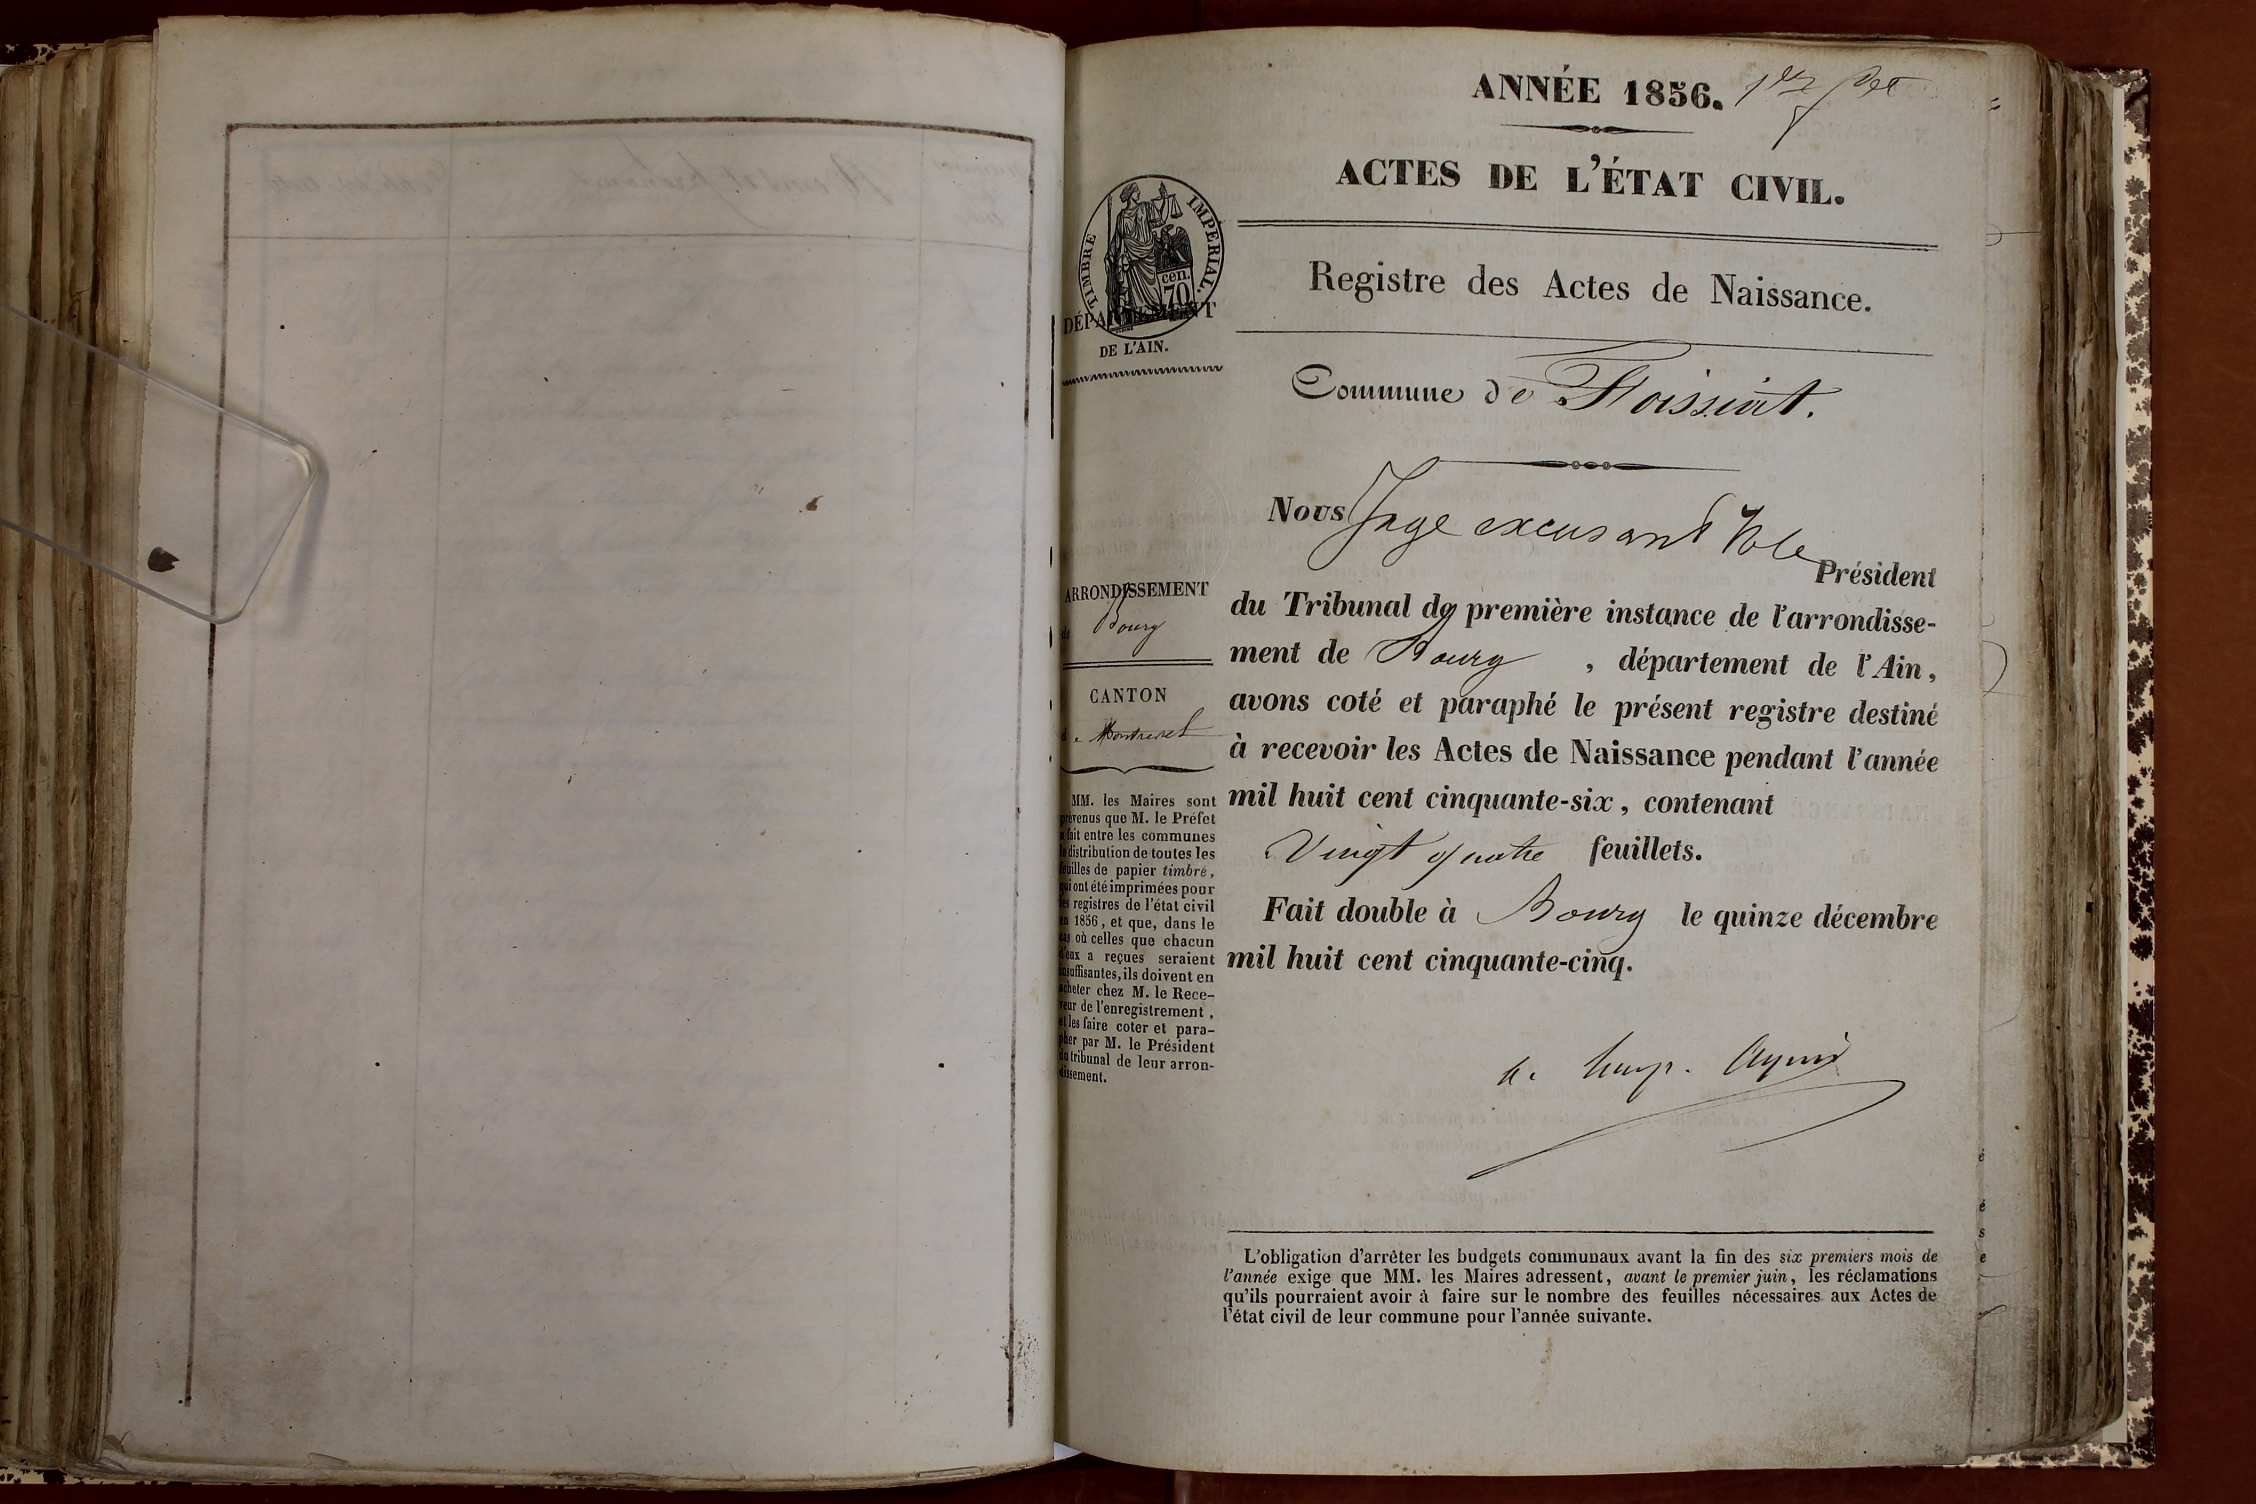 ANNÉE 1856.
ACTES DE L'ÉTAT CIVIL.
TIMBRE IMPÉRIAL.
cen.
70
DÉPARTEMENT
DE L'AIN.
Registre des Actes de Naissance.
Commune de Foissiat.
Nous Juge excusant Mr le
Président
du Tribunal de première instance de l'arrondisse-
ment de Bourg , département de l'Ain,
avons coté et paraphé le présent registre destiné
à recevoir les Actes de Naissance pendant l'année
mil huit cent cinquante-six, contenant
Vingt quatre feuillets.
Fait double à Bourg le quinze décembre
mil huit cent cinquante-cinq.
ARRONDISSEMENT
de Bourg
CANTON
de Montrevel
MM. les Maires sont
prévenus que M. le Préfet
a fait entre les communes
la distribution de toutes les
feuilles de papier timbré,
qui ont été imprimées pour
les registres de l'état civil
en 1856, et que, dans le
cas où celles que chacun
d'eux a reçues seraient
insuffisantes, ils doivent en
acheter chez M. le Rece-
veur de l'enregistrement,
et les faire coter et para-
pher par M. le Président
du tribunal de leur arron-
dissement.
L'obligation d'arrêter les budgets communaux avant la fin des six premiers mois de
l'année exige que MM. les Maires adressent, avant le premier juin, les réclamations
qu'ils pourraient avoir à faire sur le nombre des feuilles nécessaires aux Actes de
l'état civil de leur commune pour l'année suivante.